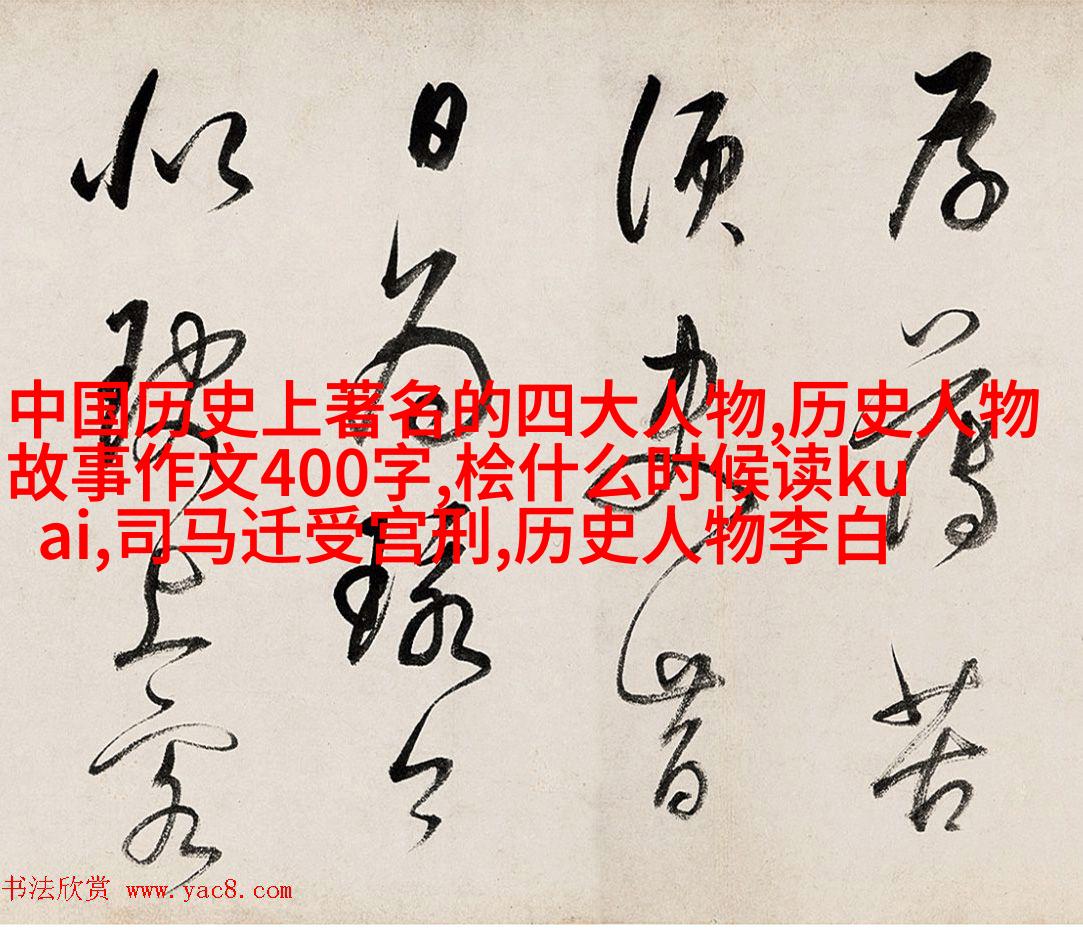 中国历史上著名的四大人物,历史人物
故事作文400字,桧什么时候读ku
ai,司马迁受宫刑,历史人物李白
薄苦
须
日为
似上客
书法欣赏 www.yac8.com